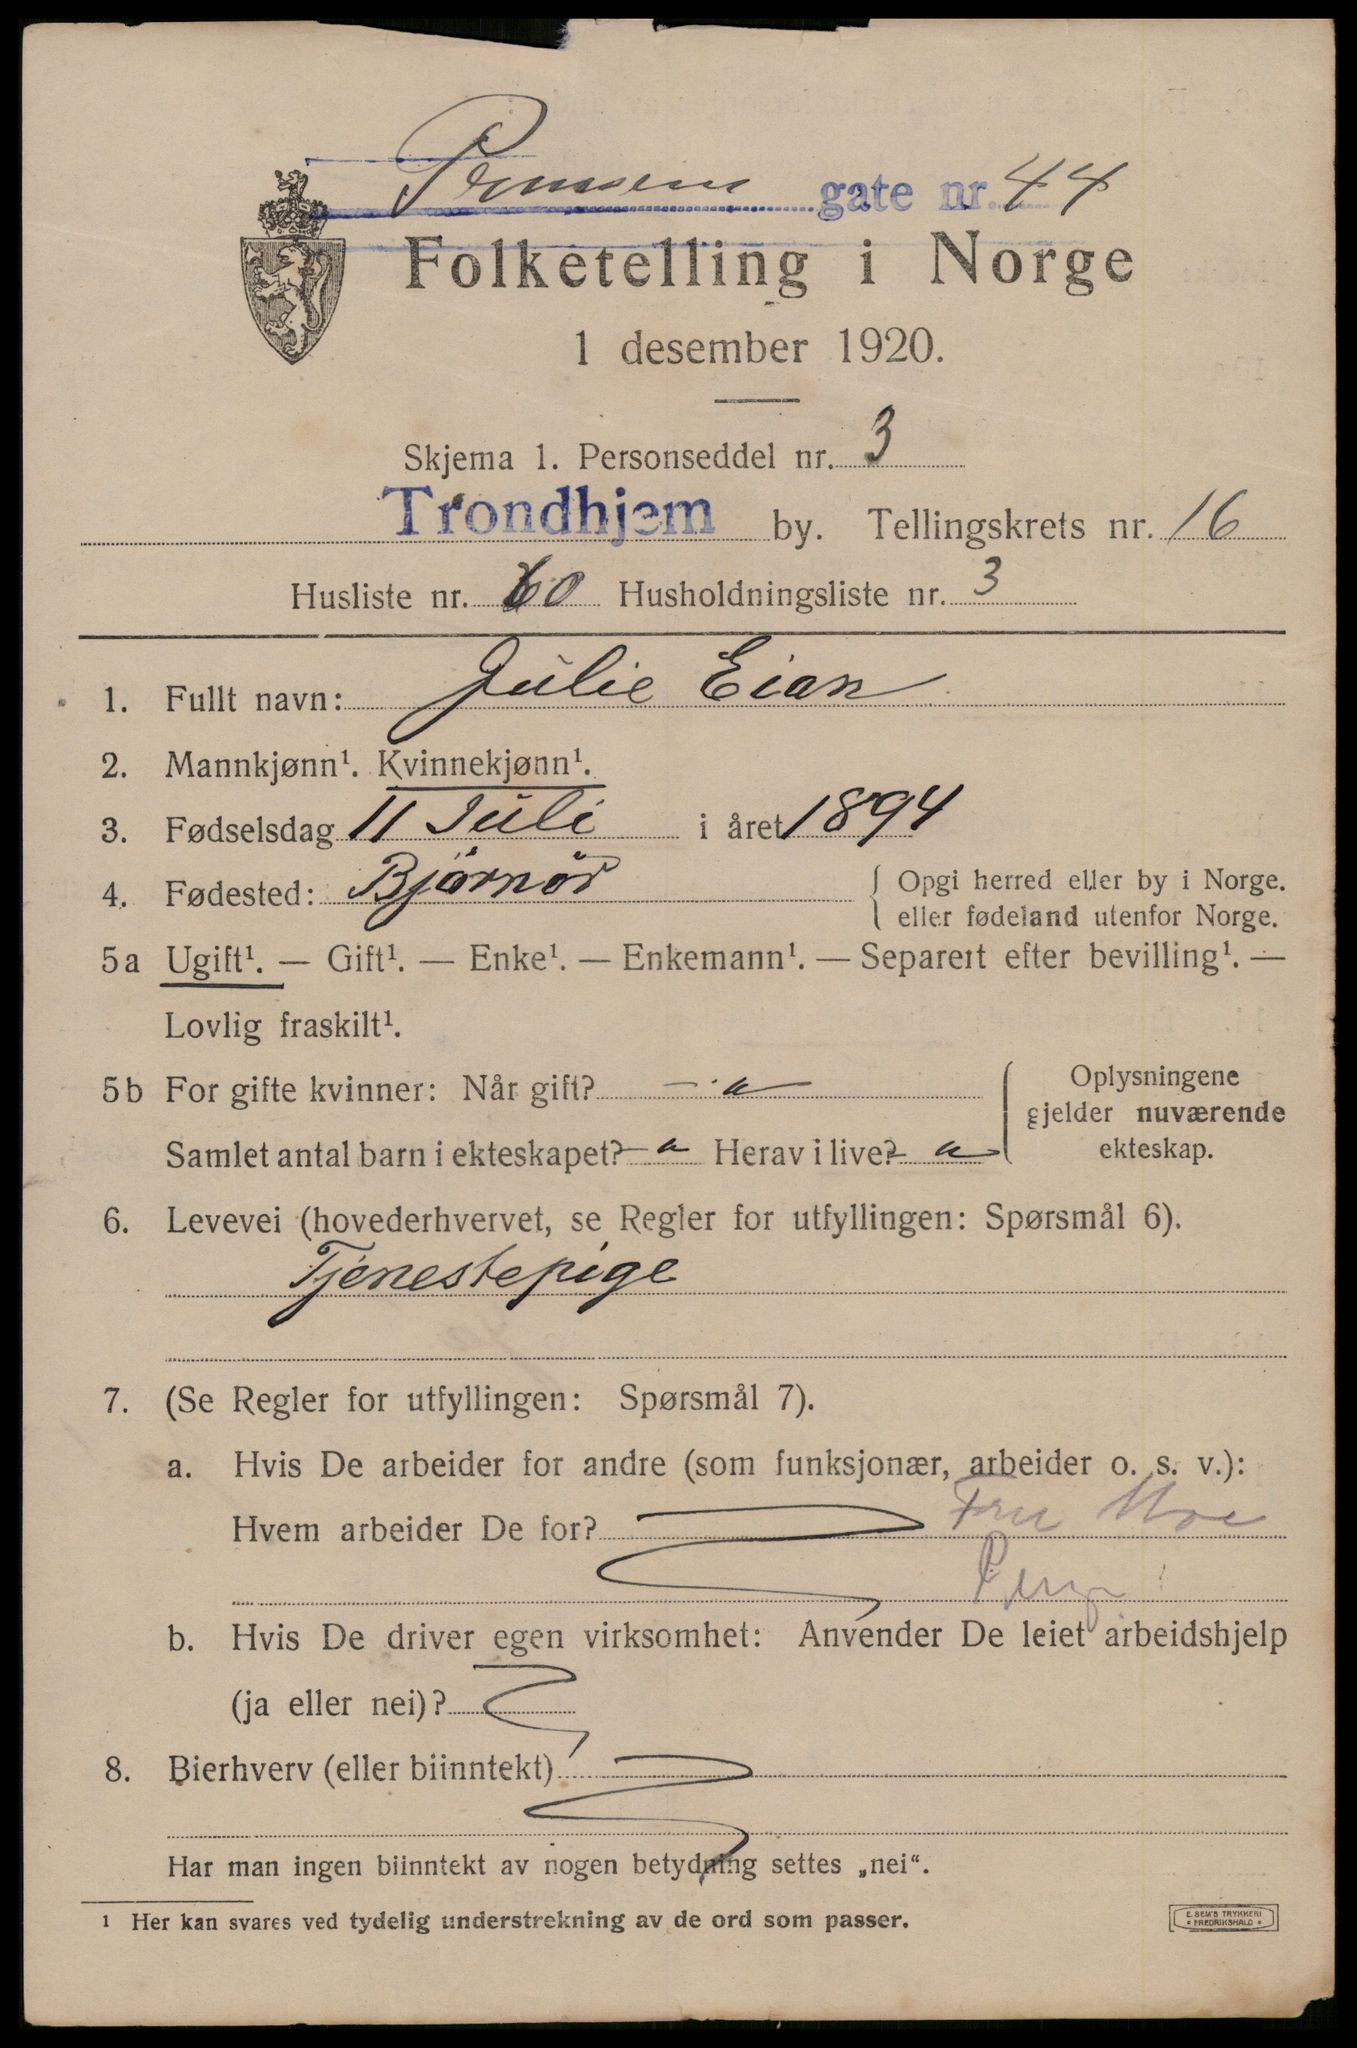 Prinsens gate nr. 44
Folketelling i Norge
1 desember 1920.
Skjema 1. Personseddel nr. 3
Trondhjem by. Tellingskrets nr. 16
Husliste nr. 60 Husholdningsliste nr. 3
1. Fullt navn: Julie Eian
2. Mannkjønn¹. Kvinnekjønn¹.
3. Fødselsdag 11 Juli i året 1894
4. Fødested: Bjørnør { Opgi herred eller by i Norge.
eller fødeland utenfor Norge.
5a Ugift¹. — Gift¹. — Enke¹. — Enkemann¹. — Separert efter bevilling¹. —
Lovlig fraskilt¹.
5b For gifte kvinner: Når gift?
Samlet antal barn i ekteskapet? Herav i live?
Oplysningene
gjelder nuværende
ekteskap.
6. Levevei (hovederhvervet, se Regler for utfyllingen: Spørsmål 6).
Tjenestepige
7. (Se Regler for utfyllingen: Spørsmål 7).
a. Hvis De arbeider for andre (som funksjonær, arbeider o. s. v.):
Hvem arbeider De for? Fru Moe
b. Hvis De driver egen virksomhet: Anvender De leiet arbeidshjelp
(ja eller nei)?
8. Bierhverv (eller biinntekt)
Har man ingen biinntekt av nogen betydning settes „nei“.
¹ Her kan svares ved tydelig understrekning av de ord som passer.
E. SEM'S TRYKKERI
• FREDRIKSHALD •